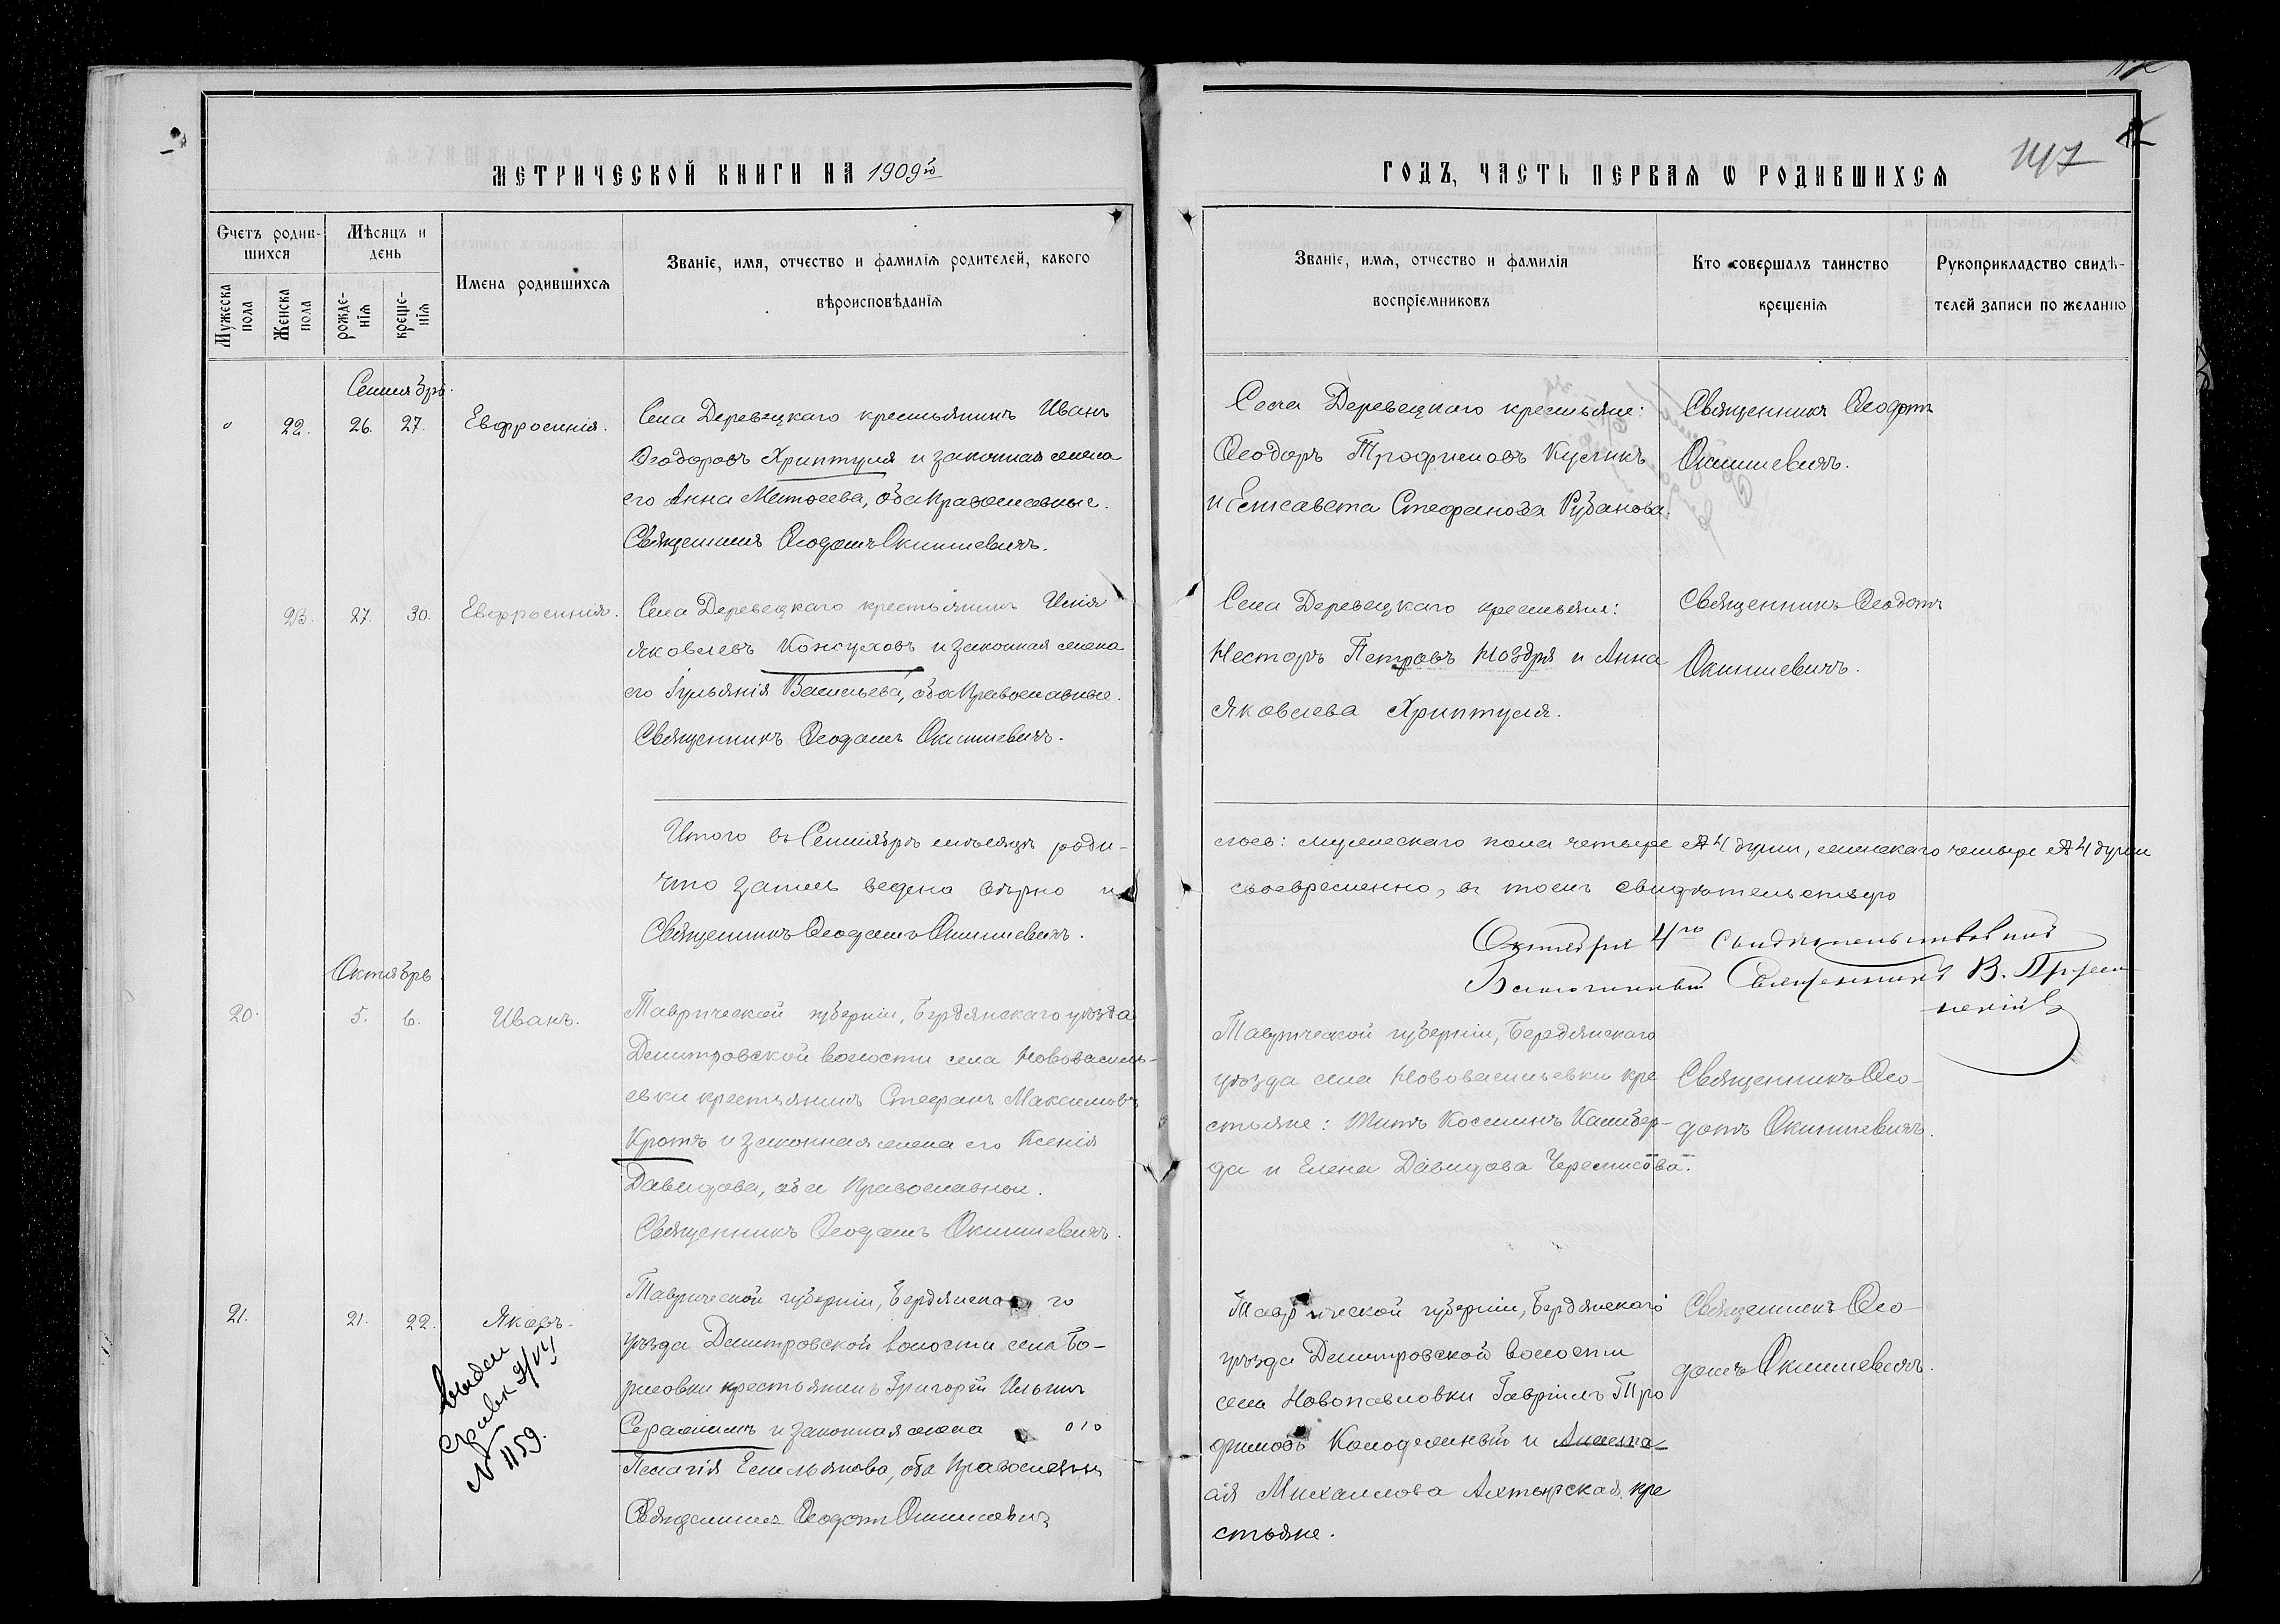 МЕТРИЧЕСКОЙ КНИГИ НА 1909й
ГОДЪ, ЧАСТЬ ПЕРВАЯ Ѡ РОДИВШИХСЯ
147
Счетъ родив-
шихся
Мѣсяцъ и
день
Мужеска
пола
Женска
пола
рожде-
нія
креще-
нія
Имена родившихся
Званіе, имя, отчество и фамилія родителей, какого
вѣроисповѣданія
Званіе, имя, отчество и фамилія
воспріемниковъ
Кто совершалъ таинство
крещенія
Рукоприкладство свидѣ-
телей записи по желанію
Сентябрь.
22. 26. 27. Евфросинія.
Села Деревецкаго крестьянинъ Иванъ
Ѳеодоровъ Хриптуля и законная жена
его Анна Матѳеева, оба православные.
Священникъ Ѳеодотъ Окишевичъ.
Села Деревецкаго крестьяне:
Ѳеодоръ Трофимовъ Кусликъ
и Елисавета Стефанова Рубанова.
Священникъ Ѳеодотъ
Окишевичъ.
23. 27. 30. Евфросинія.
Села Деревецкаго крестьянинъ Илія
Яковлевъ Кожуховъ и законная жена
его Іуліанія Васильева, оба православные.
Священникъ Ѳеодотъ Окишевичъ.
Села Деревецкаго крестьяне:
Несторъ Петровъ Ноздря и Анна
Яковлева Хриптуля.
Священникъ Ѳеодотъ
Окишевичъ.
Итого въ Сентябрѣ мѣсяцѣ роди-
лось: мужескаго пола четыре 4 души, женскаго четыре 4 души
что запись ведена вѣрно и
своевременно, въ томъ свидѣтельствую
Священникъ Ѳеодотъ Окишевичъ.
Октября 4го свидѣтельствовалъ
Благочинный Священникъ В.
Октябрь.
20. 5. 6. Иванъ.
Таврической губерніи, Бердянскаго уѣзда
Демитровской волости села Нововасиль-
евки крестьянинъ Стефанъ Максимовъ
Кротъ и законная жена его Ксенія
Давидова, оба православные.
Священникъ Ѳеодотъ Окишевичъ.
Таврической губерніи, Бердянскаго
уѣзда села Нововасильевки кре
стьяне: Титъ Косминъ Калибер-
да и Елена Давидова Черемисова.
Священникъ Ѳео-
дотъ Окишевичъ.
21. 21. 22. Яковъ.
Таврической губерніи, Бердянска го
уѣзда Демитровской волости села Бо-
рисовки крестьянинъ Григорій Ильинъ
Серажимъ и законная жена его
Пелагія Емельянова, оба православны
Священникъ Ѳеодотъ Окишевичъ
Таврической губерніи, Бердянскаго
уѣзда Демитровской волости
села Новопавловки Гавріилъ Тро
фимовъ Колодяжный и Анаста-
сія Михаилова Ахтырская, кре
стьяне.
Священникъ Ѳео-
дотъ Окишевичъ.
Выдан
справк 9/VI
N 1159.